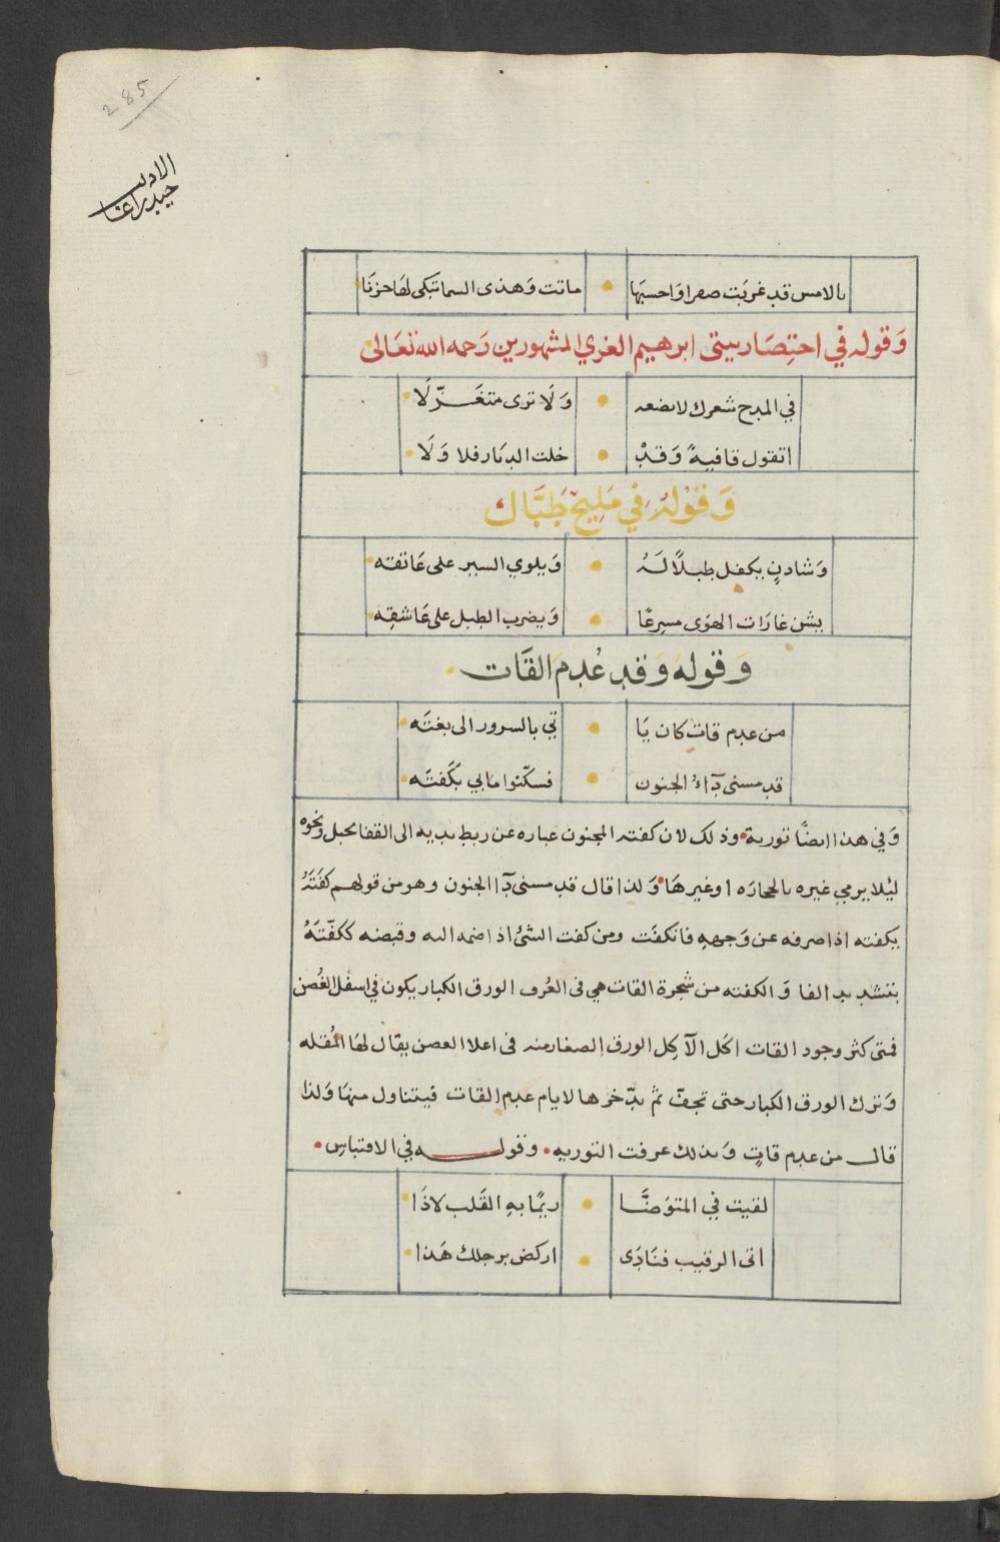 285
الاديب
حيدر اغا
بالامس قد غربت صفرا وَاحسبهَا • ماتت وَهذى السما تبكى لهَا حزنَا
وَقوله في اختِصَار بيتى ابرهيم الغزي المشهورين رَحمه الله تعَالى
في المدح شعرك لا تضعه • وَلَا ترى متغَـزّلَا
اتقول قافيةً وَقدْ • خلت الديَار فلا وَلَا
وَقوْلهُ فِي مَلِيحْ طَبَّال
وَشادنٍ يكفل طبلًا لَـهُ • وَيلوي السير على عَاتقه
يشن غارَات الهوَى مسرعًا • وَيضرب الطبل على عَاشقِه
وَقوله وَقد عُدِم القَات
من عدم قات كان يَا • تي بالسرور الى بغتَه
قد مسنى دَآءُ الجنون • فسكّنوا ما بي بكَفتَه
وَفي هذا ايضًا تورية • وذلك لان كفته المجنون عباره عن ربط يديه الى القفا بحبل ونحوه
ليُلا يرمي غيره بالحجارَه اوغيرهَا • وَلذا قال قد مسنى دَآ الجنون وهو من قولهم كفَتَهُ
يكفته اذا صرفه عن وَجههِ فانكفَت ومن كفت الشئُ اذا ضمه اليه وقبضه ككفّتَهُ
بتشديد الفا وَالكفته من شجرة القات هي فى العُرف الورق الكبار يكون في اسفل الغُصن
فمتى كثر وجود القات اكَل الآكِل الورق الصغار منه فى اعلا الغصن يقال لهَا المُقله
وَترك الورق الكبار حتى تجفّ ثمّ يدّخرها لايام عدم القات فيتناول منهَا وَلذا
قال من عدم قاتٍ وَبذلك عرفت التوريه • وَقولـــه في الاقتباسِ •
لقيت فِي المتوَضَّـا • ريمًا بهِ القَلب لاذَا
اتى الرقيب فنَادَى • اركض برجلك هَذا